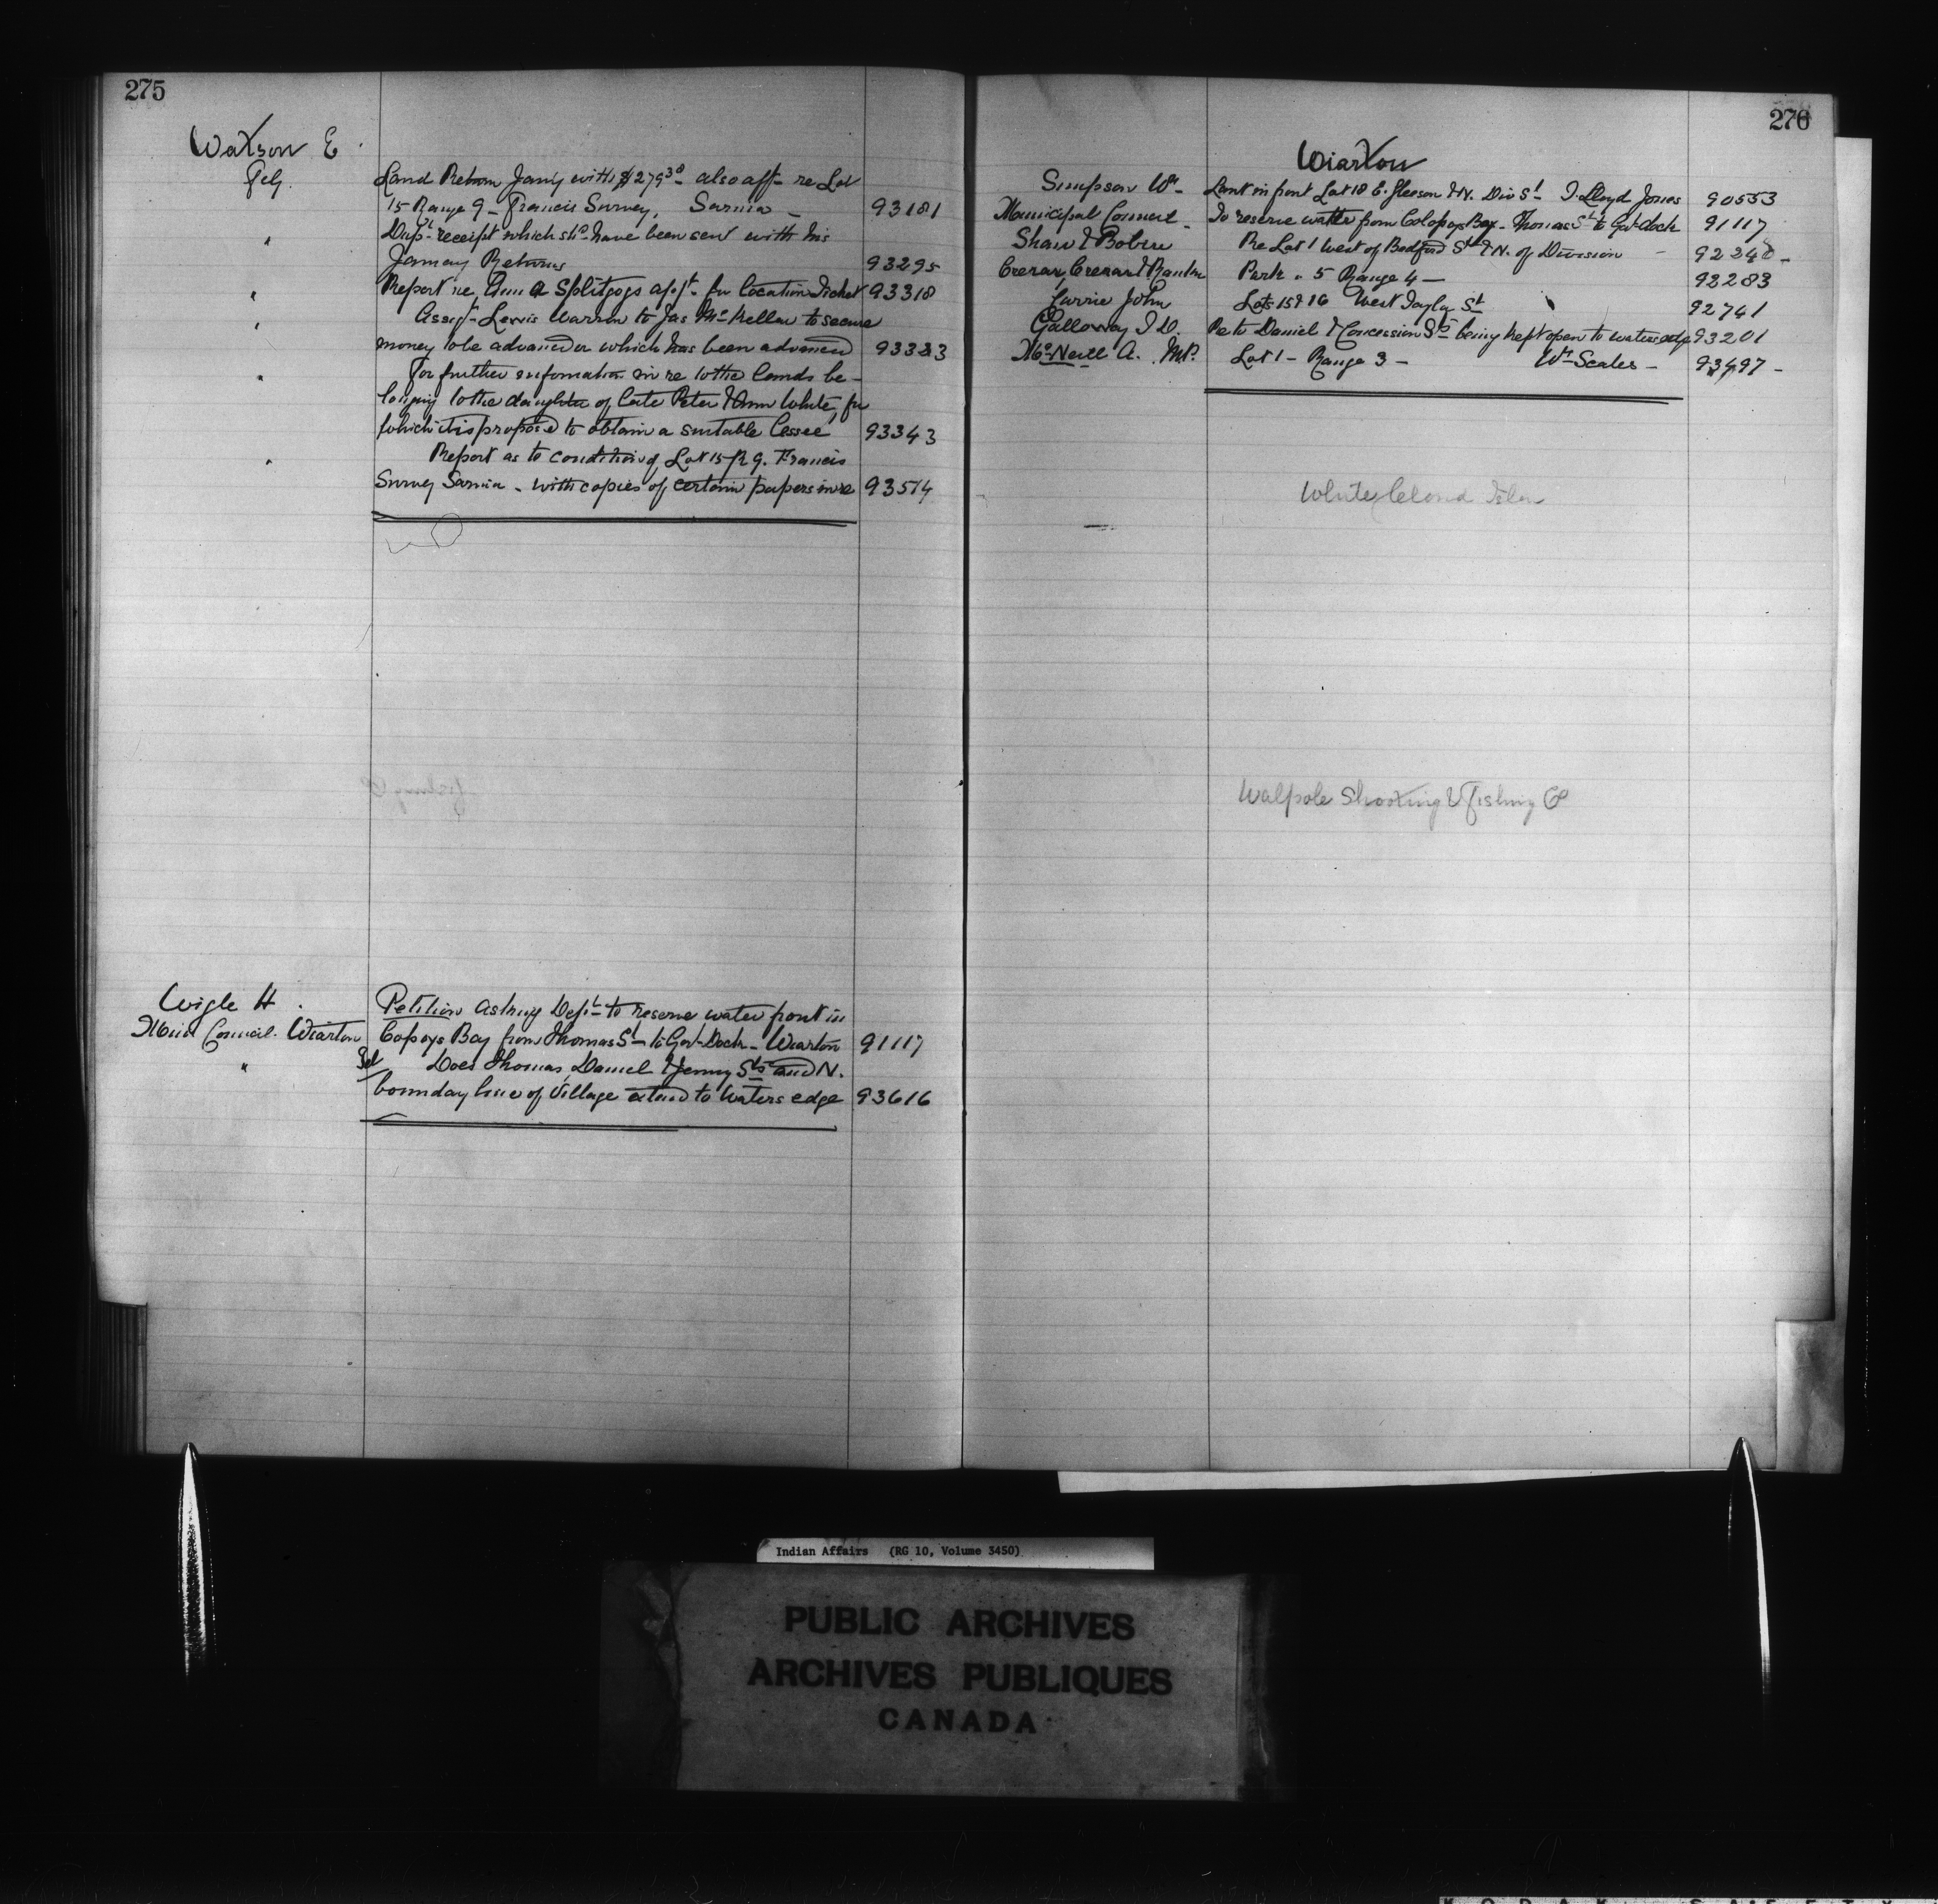 275
Watson E
Feby. Land Return Jany with $279.30 also aff- re Lot
15 Range 9 - Francis Survey, Sarnia - 93181
" Dupt receipt which shd have been sent with his
January Returns 93295
" Report re Ann Splitgogs appt. for Location Ticket 93318
" Assigt- Lewis Warren to Jas McKellar to secure
money to be advanced or which has been advanced 93323
" For further information in re to the lands be-
longing to the daughter of late Peter & Ann White, for
which it is proposed to obtain a suitable lessee 93343
" Report as to condition of Lot 15 R 9. Francis
Survey Sarnia - with copies of certain papers in re 93514
Wigle H.
Muni Council. Wiarton Petition asking Dept to reserve water front in
Copoys Bay from Thomas St to Govt Dock - Wiarton 91117
" Does Thomas, Daniel & Jenny Sts and N.
boundary line of Village extend to waters edge 93616
276
Wiarton
Simpson Wm - Land in front Lot 18 E. Gleeson & N. Div St - T. Lloyd Jones 90553
Municipal Council - To reserve water from Colopoys Bay - Thomas St to Govt dock 91117
Shaw & Re Lot 1 West of Bedford St & N. of Division - 92248 -
Crerar, Crerar & Park . 5 Range 4 - 92283
Currie John Lots 15 & 16 West Taylor St 92741
Galloway I D. Re to Daniel & Concession Sts being kept open to waters edge 93201
McNeill A. M.P. Lot 1 - Range 3 - Wm Scales - 93497 -
White Cloud Islan
Walpole Shooting & Fishing Co
Indian Affairs (RG 10, Volume 3450)
PUBLIC ARCHIVES
ARCHIVES PUBLIQUES
CANADA